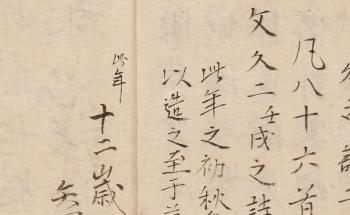 凡八十六首
文久二壬戌之詩
此年之初秋
以造之至于
此年
十二歳